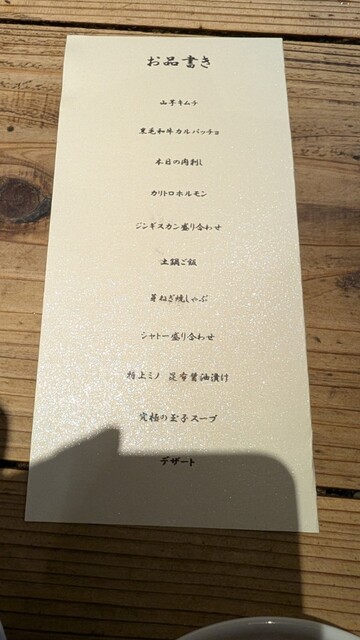 お品書き
山芋キムチ
黒毛和牛カルパッチョ
本日の肉刺し
カリトロホルモン
ジンギスカン盛り合わせ
土鍋ご飯
葱ねぎ焼しゃぶ
シャトー盛り合わせ
特上ミノ 昆布醤油漬け
究極の玉子スープ
デザート